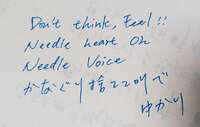 Don't think, Feel!!
Needle heart Oh
Needle Voice
かなぐり捨てて叫んで
ゆがり